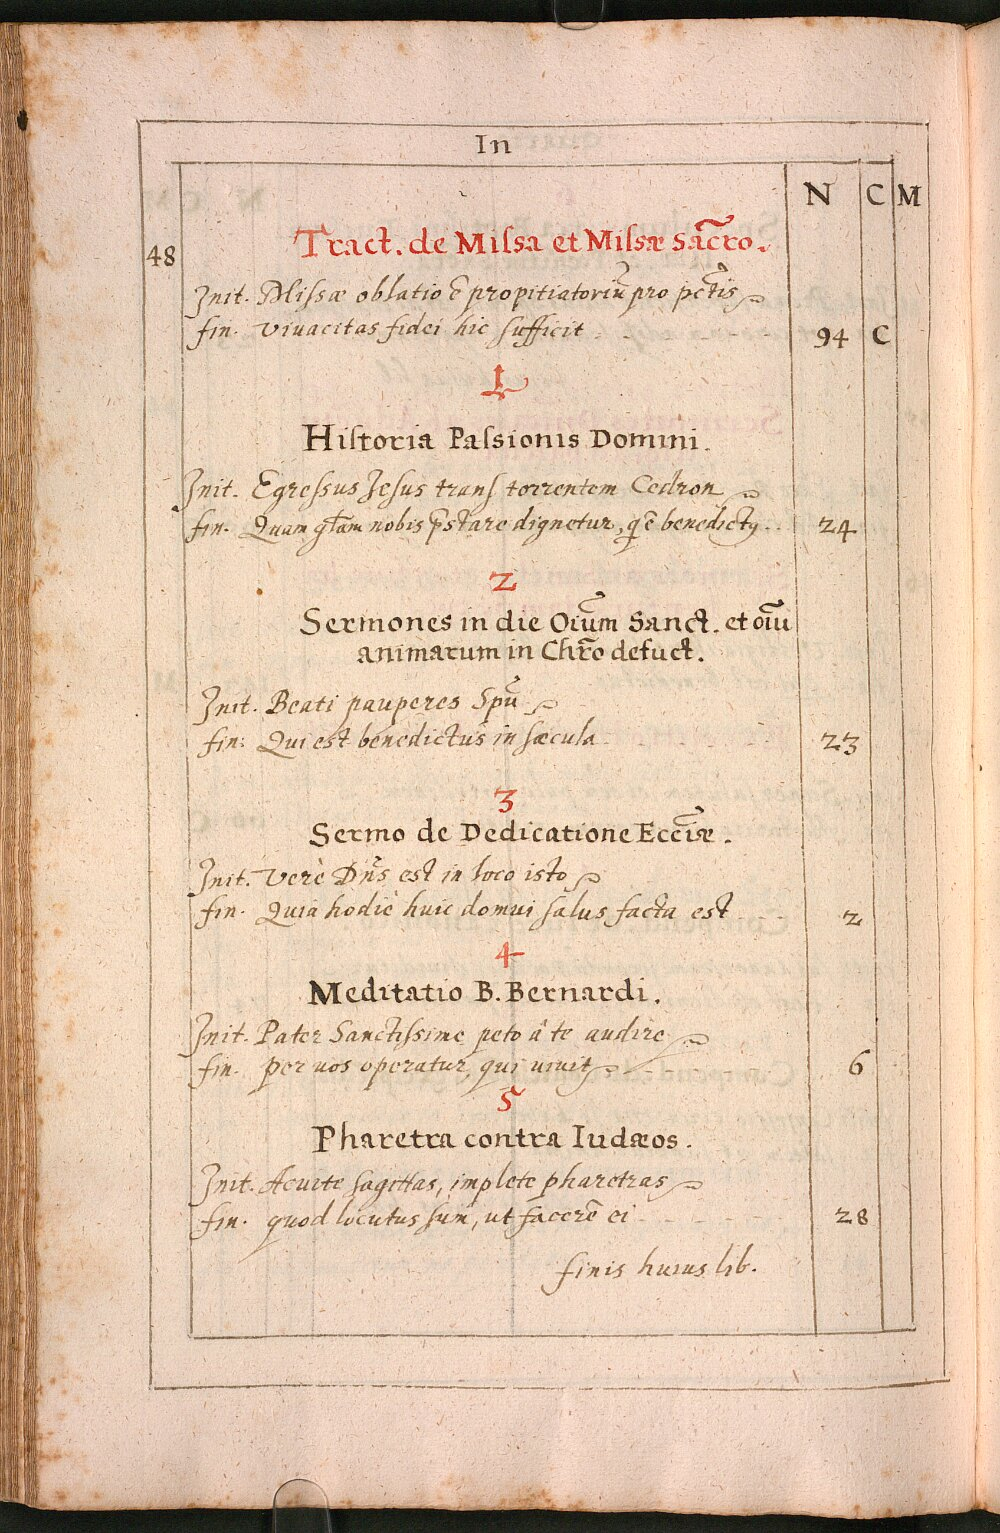 In
N C M
48 Tract. de Miſsa et Miſsæ Sac̃ro.
Init. Miſsæ oblatio ẽ propitiatoriũ pro pc̃tis
fin. vivacitas fidei hic ſufficit 94 C
1
Hiſtoria Paſsionis Domini.
Init. Egreſsus Jeſus tranſ torrentem Cedron
fin. Quam gr̃am nobis p̃stare dignetur, q̃ ẽ benedictꝯ 24
2
Sermones in die Oĩum Sanct. et oĩu
animarum in Chrõ defuct.
Init. Beati pauperes Spũ
fin: Qui est benedictus in ſæcula 23
3
Sermo de Dedicatione Eccĩæ.
Init. verè Dñs est in loco isto
fin. Quia hodiè huic domui ſalus facta est 2
4
Meditatio B. Bernardi.
Init. Pater Sanctiſsime peto â te audire
fin. per uos operatur, qui uiuit 6
5
Pharetra contra Iudæos.
Init. Acuite ſagittas, implete pharetras
fin. quod locutus ſum̃, ut facerẽ ei 28
finis huius lib.